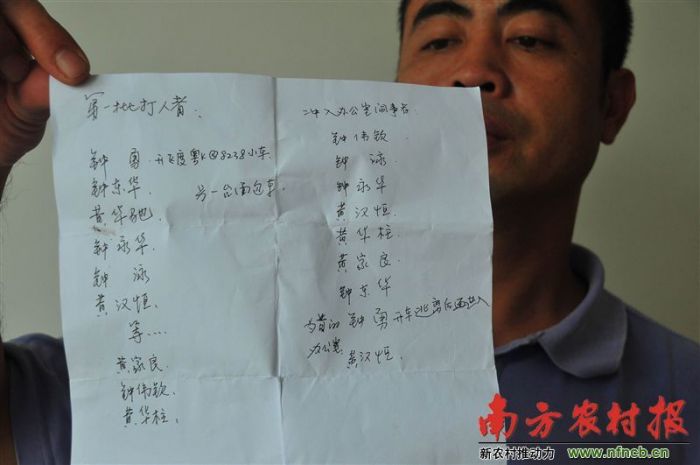 第一批打人者:
钟 勇 开飞度粤K@8238小车.
钟东华 另一台面包车.
黄华驰
钟永华.
钟 泳
黄汉恒.
等……
黄家良.
钟伟钦.
黄华柱.
二冲入办公室闹事者
钟伟钦.
钟 泳.
钟永华
黄汉恒.
黄华柱.
黄家良.
钟东华
钟 勇 开车逃离后返进入
办公室
黄汉恒.
南方农村报
新农村推动力 www.nfncb.cn